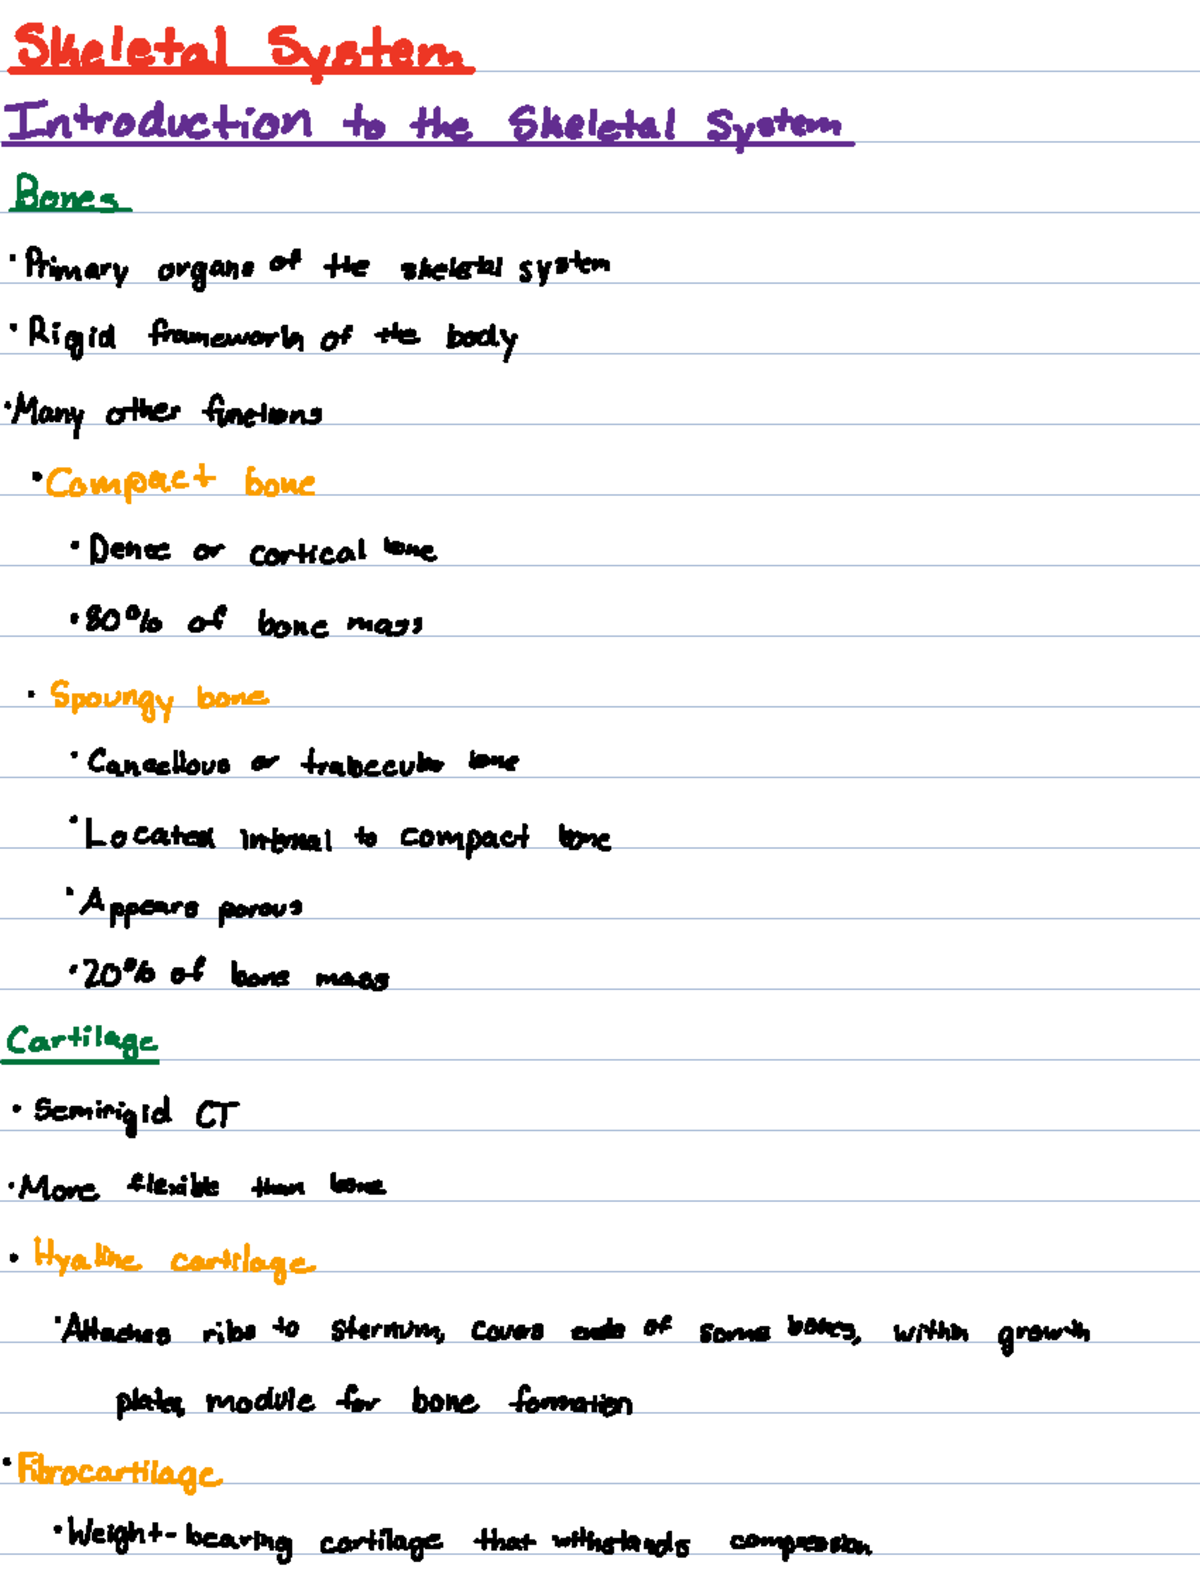 Skeletal System
Introduction to the Skeletal System
Bones
· Primary organs of the skeletal system
· Rigid framework of the body
· Many other functions
· Compact bone
· Dense or cortical bone
· 80% of bone mass
· Spoungy bone
· Cancellous or trabecular bone
· Located internal to compact bone
· Appears porous
· 20% of bone mass
Cartilage
· Semirigid CT
· More flexible than bone
· Hyaline cartilage
· Attaches ribs to sternum, covers ends of some bones, within growth
plates, module for bone formation
· Fibrocartilage
· Weight-bearing cartilage that withstands compression